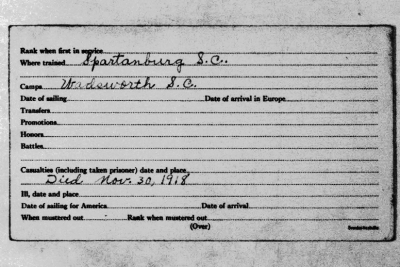 Rank when first in service
Where trained Spartanburg S.C.
Camps Wadsworth S.C.
Date of sailing Date of arrival in Europe
Transfers
Promotions
Honors
Battles
Casualties (including taken prisoner) date and place
Died Nov. 30, 1918
Ill, date and place
Date of sailing for America Date of arrival
When mustered out Rank when mustered out
(Over)